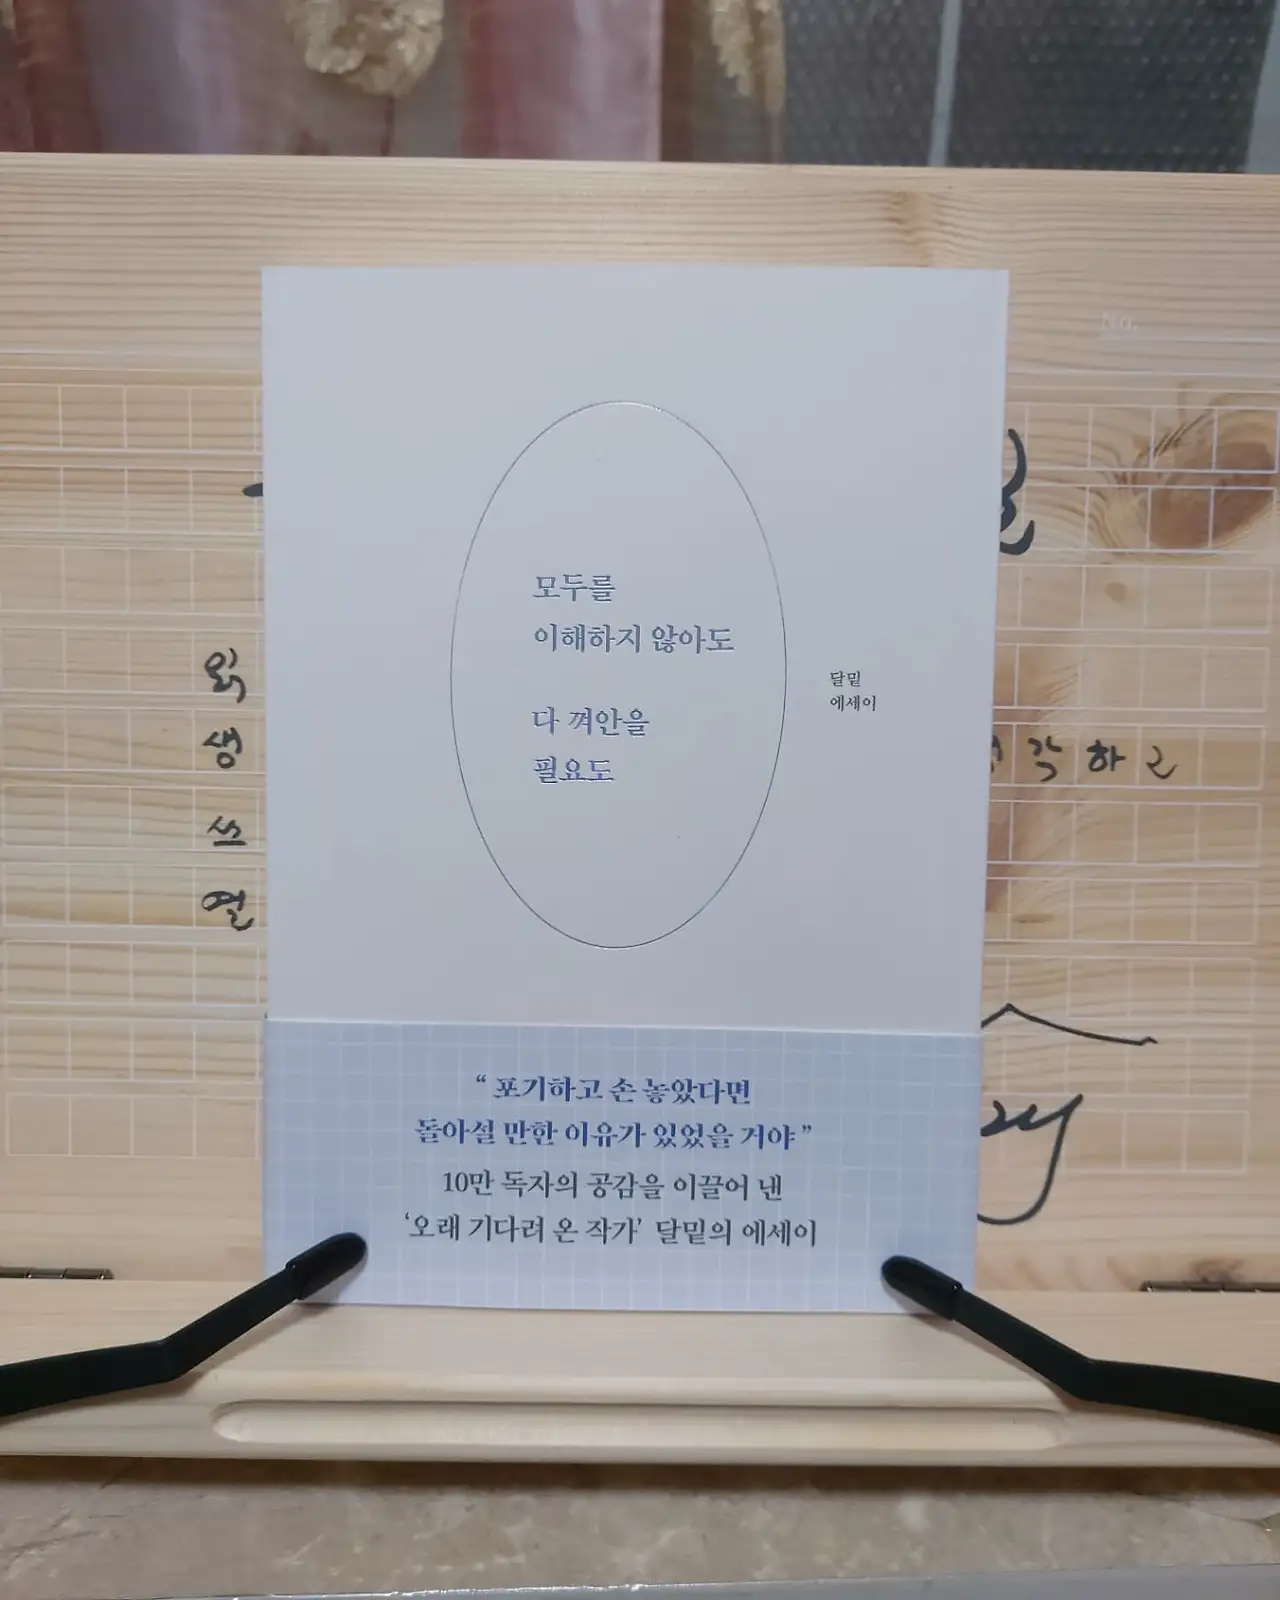 No.
모두를
이해하지 않아도
다 껴안을
필요도
달밑
에세이
읽
생
쓰
열
각하고
“ 포기하고 손 놓았다면
돌아설 만한 이유가 있었을 거야 ”
10만 독자의 공감을 이끌어 낸
‘오래 기다려 온 작가’ 달밑의 에세이